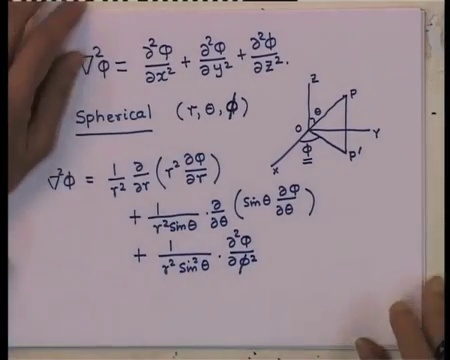 ∇²Φ = ∂²Φ/∂x² + ∂²Φ/∂y² + ∂²Φ/∂z².
Spherical (r, θ, ϕ)
Z
P
θ
O
Y
ϕ
P'
X
∇²Φ = 1/r² ∂/∂r (r² ∂Φ/∂r)
+ 1/(r² sinθ) · ∂/∂θ (sinθ ∂Φ/∂θ)
+ 1/(r² sin²θ) · ∂²Φ/∂ϕ²